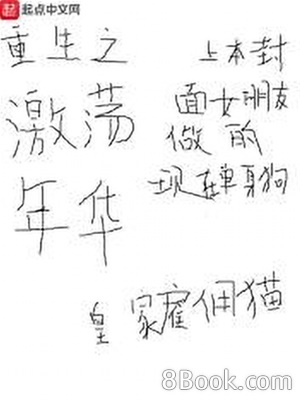 起点中文网
重生之
激荡
年华
上本封
面女朋友
做的
现在单身狗
皇家雇佣猫
8Book.com